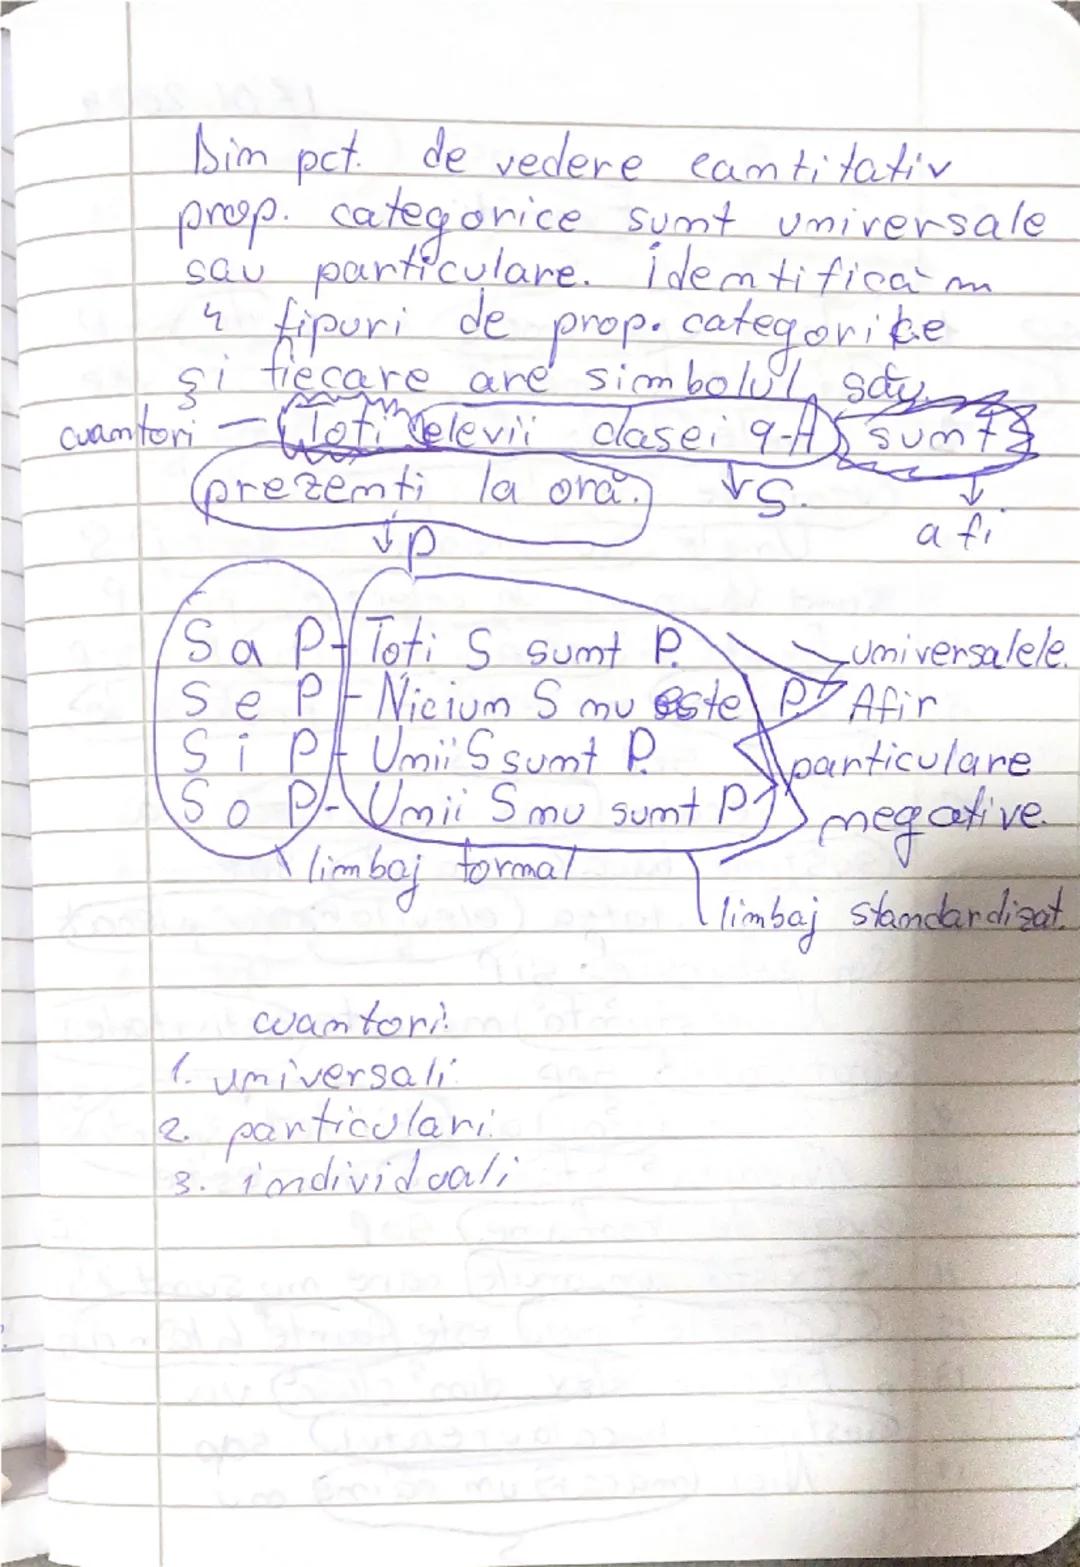 Din pct. de vedere cantitativ
prop. categorice sunt universale
sau particulare. Identificăm
4 tipuri de prop. categorice
și fiecare are simbolul său.
cuantori – Toti elevii clasei 9-A sunt
prezenti la oră. ↓S. ↓
↓P a fi
S a P - Toti S sunt P. universalele.
S e P - Niciun S nu este P Afir
S i P - Unii S sunt P. particulare
S o P - Unii S nu sunt P negative.
limbaj formal
limbaj standardizat.
cuantori:
1. universali
2. particulari.
3. individuali